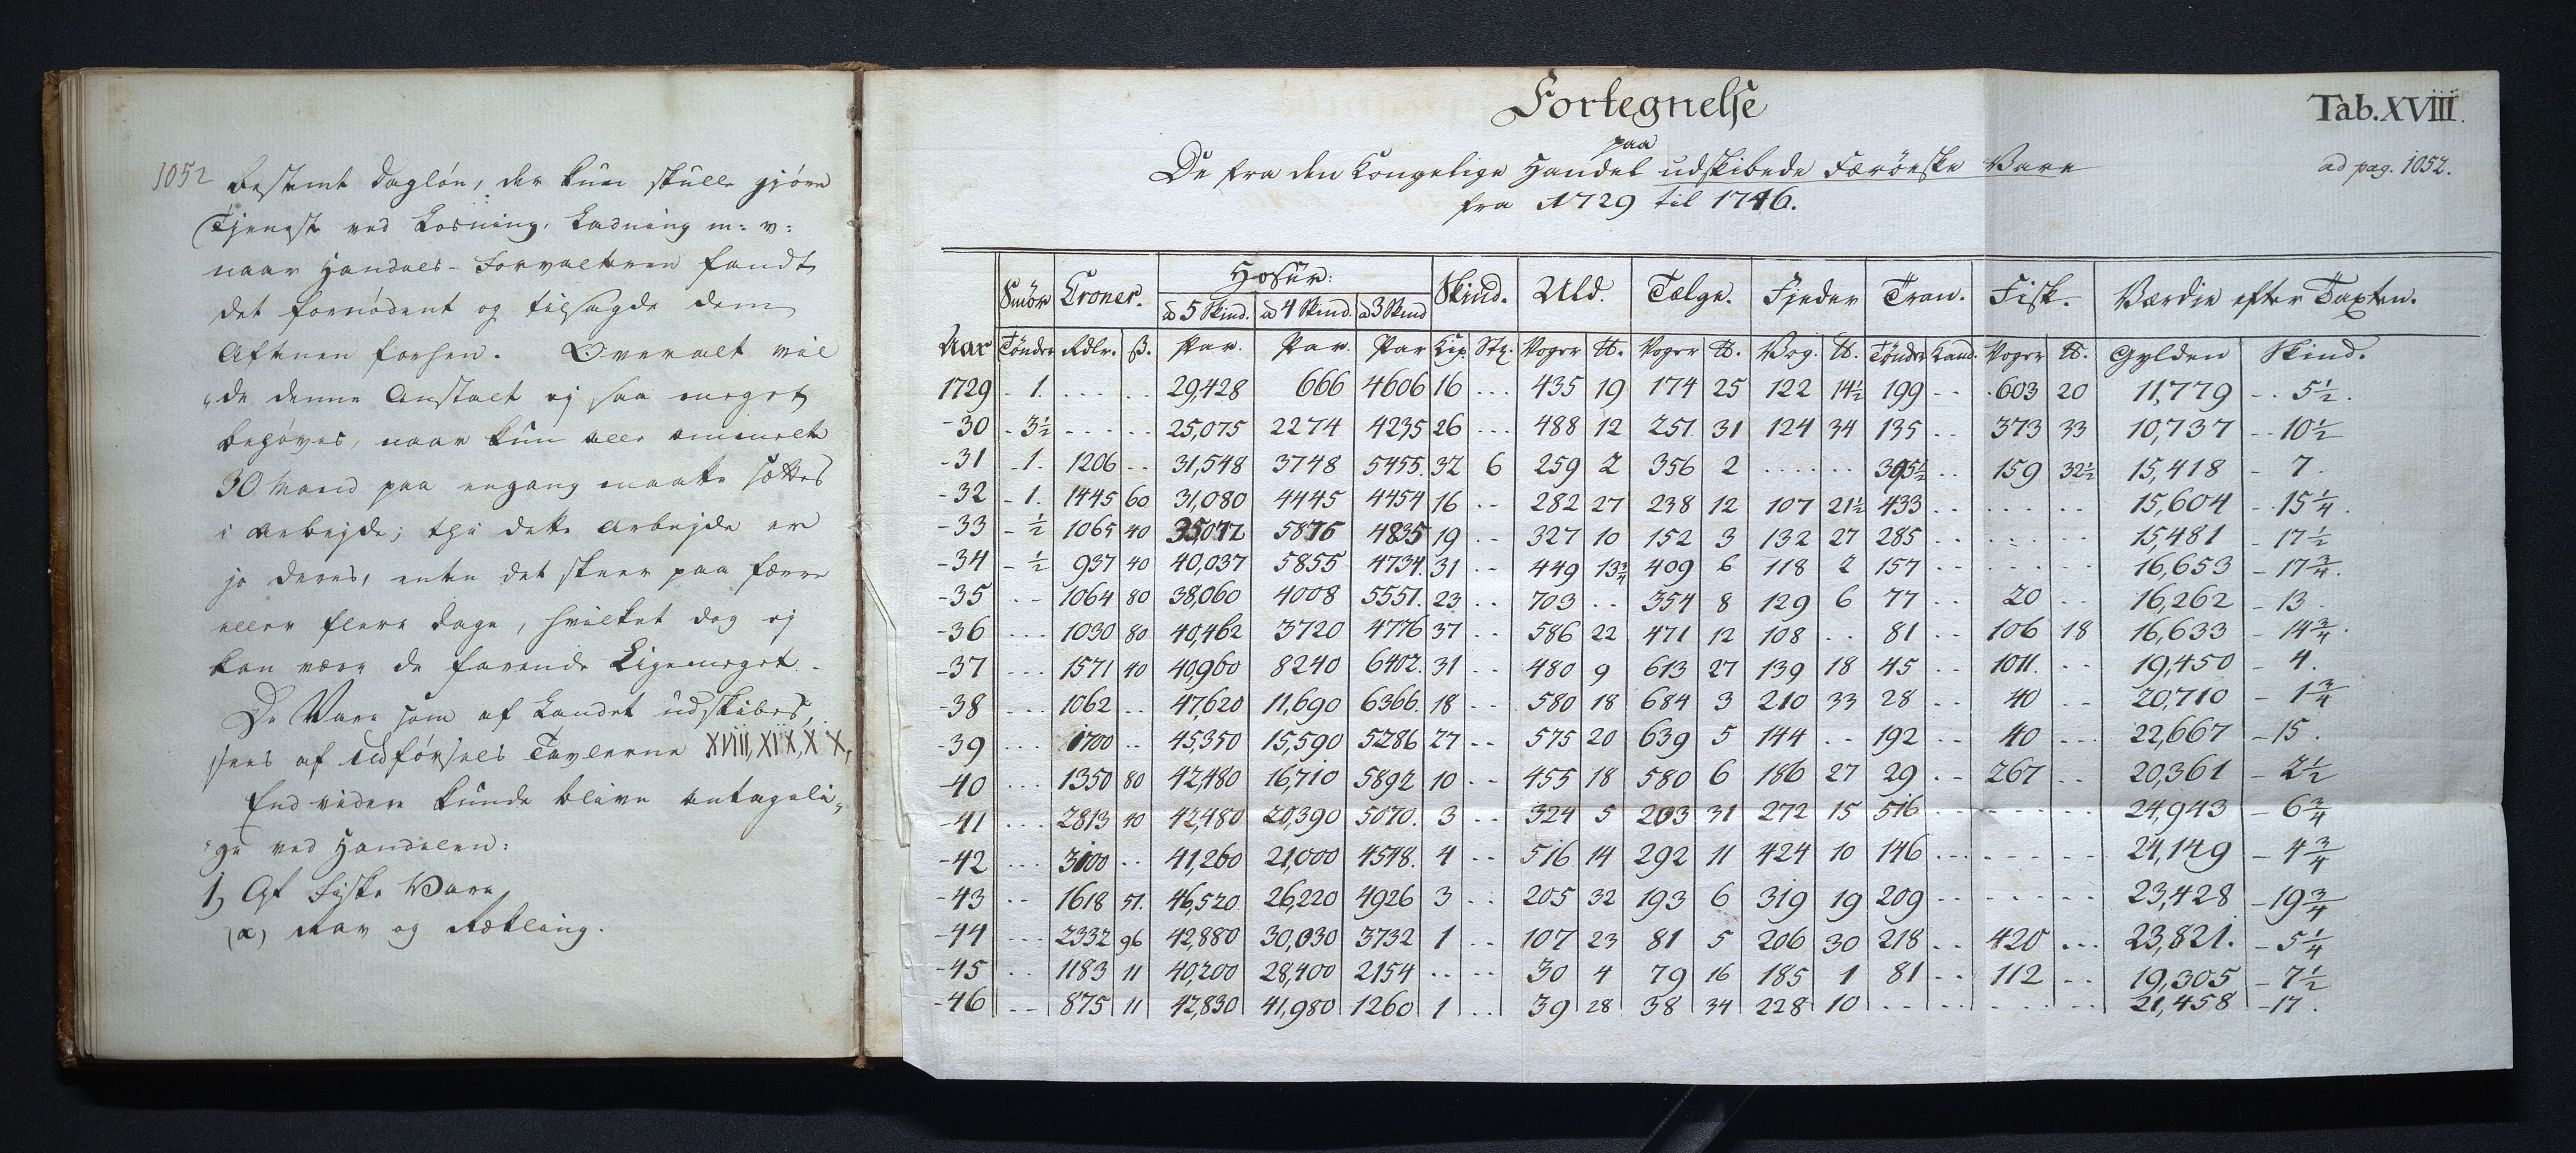 1052
bestemt Dagløn, der kun skulle gjøre
Tjenest ved Losning, Ladning m: v:
naar Handels-Forvalteren fandt
det fornödent og tilsagde dem
Aftenen forhen. Overalt vil
"de denne Anstalt ej saa meget
behøves, naar kun alle ommelte
30 Mand paa engang maatte sættes
i Arbejde; thi dette Arbejde er
jo deres, enten det skeer paa færre
eller flere Dage, hvilket dog ej
kan være de farende Ligemeget.
De Vare som af Landet udskibes,
sees af Udførsels Tavlerne XVIII, XIX, XX,
End videre kunde blive antageli„
"ge ved Handelen:
1, Af Fiske Vare
(a) Rav og Rækling.
Fortegnelse
Tab. XVIII.
ad pag. 1052.
paa
De fra den Kongelige Handel udskibede Færöeske Vare
fra 1729 til 1746.
Smör Croner. Hosür: Skind. Uld. Tælge. Fjeder Tran. Fisk. Værdie efter Taxten.
à 5 Skind. à 4 Skind. à 3 Skind
Aar Tönder Rdlr. ß. Par. Par. Par Lis. Stz. Voger ℔. Voger ℔. Vog. ℔. Tönder Kand. Voger ℔. Gylden Skind.
1729 . 1. . . . . . 29,428 666 4606 16 . . . 435 19 174 25 122 14½ 199 - - . 603 20 11,779 - . 5½.
-30 - 3½ - - - - - 25,075 2274 4235 26 . . . 488 12 251 31 124 34 135 . . 373 33 10,737 - - 10½
-31 -1. 1206 . . 31,548 3748 5455. 32 6 259 2 356 2 . . . . . . 395½ . . 159 32½ 15,418 - 7.
-32 - 1. 1445 60 31,080 4445 4454 16 - - 282 27 238 12 107 21½ 433 . . . . . . 15,604 - . 15¼.
-33 - ½ 1065 40 35,072 5876 4835 19 - - 327 10 152 3 132 27 285 . . . . . . 15,481 - 17½
-34 - ½ 937 40 40,037 5855 4734. 31 - - 449 13¾ 409 6 118 2 157 - - . . . . 16,653 - 17¾.
-35 . - 1064 80 38,060 4008 5551. 23 . . 703 . . 354 8 129 6 77 . . 20 . . 16,262 - 13.
-36 . . . 1030 80 40,462 3720 4776 37 . . 586 22 471 12 108 . . 81 . . 106 18 16,633 - 14¾.
-37 . . . 1571 40 40,960 8240 6402. 31 - - 480 9 613 27 139 18 45 . . 1011. . . 19,450 - 4.
-38 . . . 1062 . . 47,620 11,690 6366. 18 - - 580 18 684 3 210 33 28 . . 40 . . 20,710 - 1¾
-39 . . . 1700 . . 45,350 15,590 5286 27 - - 575 20 639 5 144 . . 192 - - 40 . . . 22,667 - 15.
-40 . . . 1350 80 42,480 16,710 5892 10 - - 455 18 580 6 186 27 29 . - 267 . . 20,361 - 2½
-41 . . . 2813 40 42,480 20,390 5070. 3 - - 324 5 203 31 272 15 516 . . - - - - 24,943 - 6¾
-42 . . . 3100 . . 41,260 21,000 4548. 4 - - 516 14 292 11 424 10 146 . . . - - - - 24,149 - 4¾
-43 - - 1618 51. 46,520 26,220 4926 3 . . 205 32 193 6 319 19 209 - - - - - - 23,428 - 19¾
-44 - - - 2332 96 42,880 30,030 3732 1 . . 107 23 81 5 206 30 218 . . 420 . . . 23,821. - 5¼
-45 . . 1183 11 40,200 28,400 2154 . . . . 30 4 79 16 185 1 81 - - 112 . . 19,305 - 7½
-46 - - 875 11 42,830 41,980 1260 1 . . 39 28 38 34 228 10 . . . . . . . . 21,458 - 17.